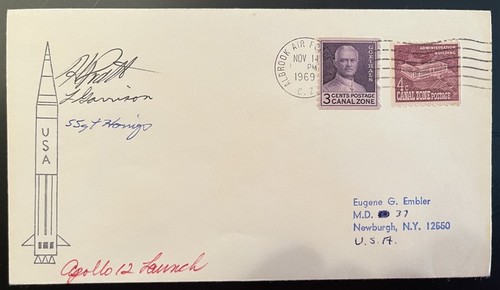 L Garrison
SSgt
USA
Apollo 12 Launch
ALBROOK AIR FO
NOV 14
PM
1969
C.Z.
GOETHALS
3 CENTS POSTAGE
CANAL ZONE
ADMINISTRATION
BUILDING
4¢
CANAL ZONE POSTAGE
Eugene G. Embler
M.D. 37
Newburgh, N.Y. 12550
U.S.A.